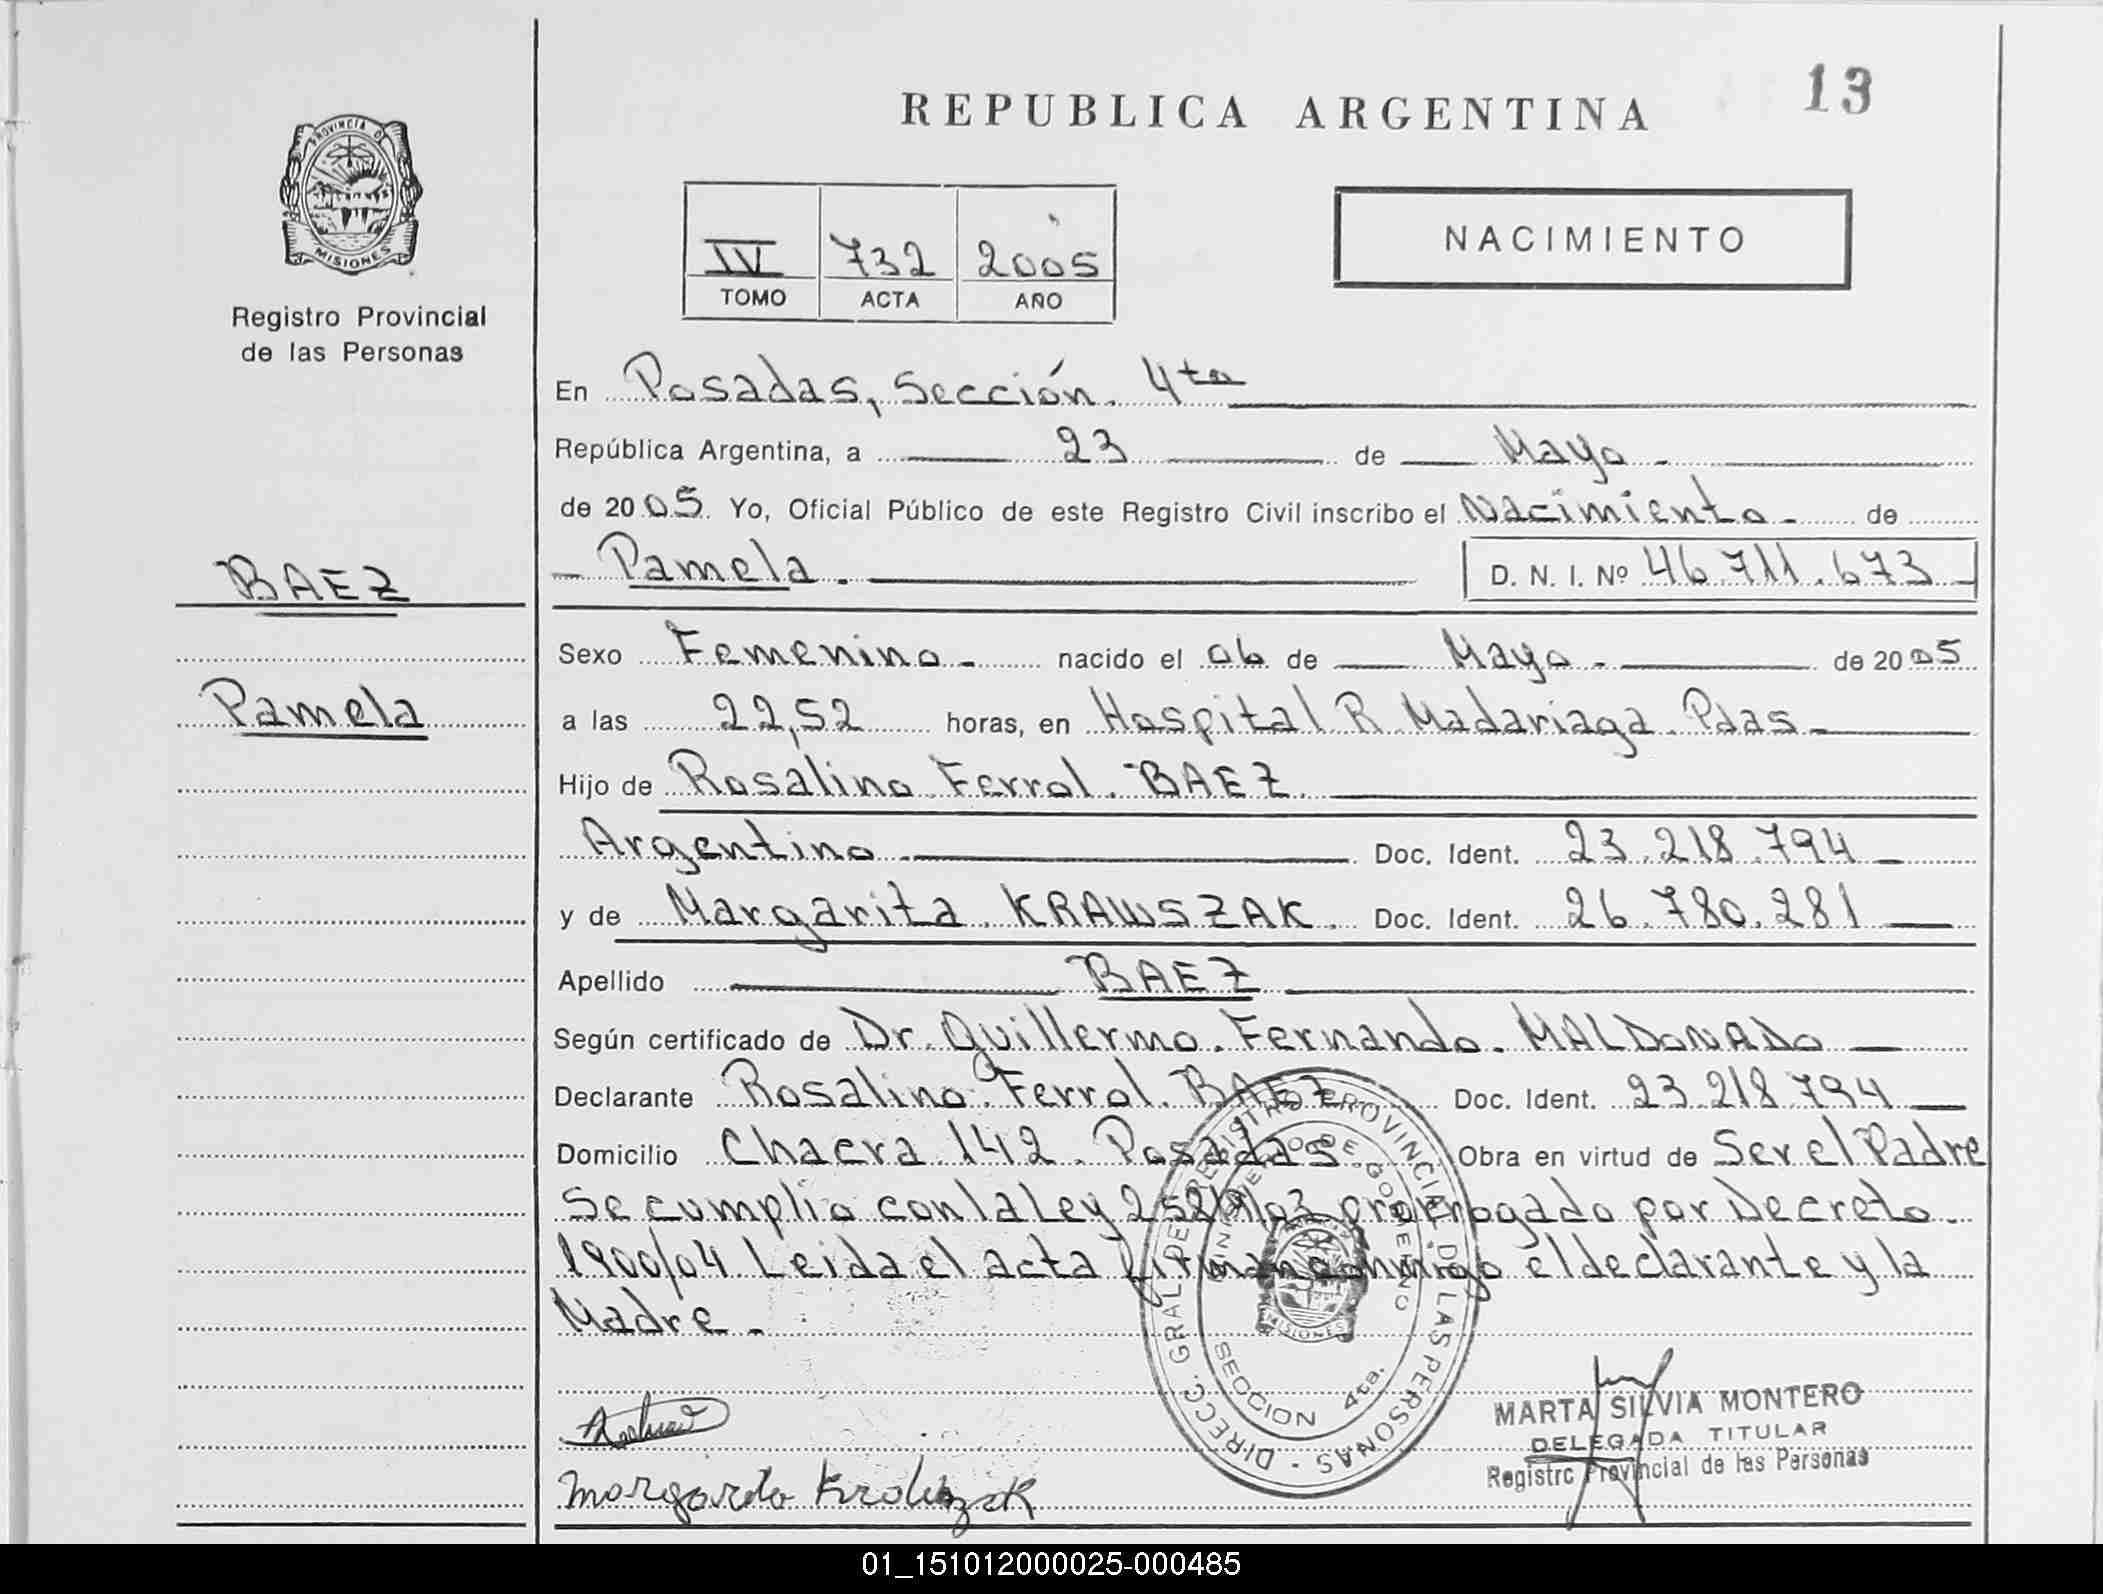 PROVINCIA DE
MISIONES
Registro Provincial
de las Personas
BAEZ
Pamela
13
REPUBLICA ARGENTINA
IV 732 2005
TOMO ACTA AÑO
NACIMIENTO
En Posadas, Sección 4ta
República Argentina, a 23 de Mayo
de 2005 Yo, Oficial Público de este Registro Civil inscribo el Nacimiento de
Pamela. D. N. I. Nº 46.711.673
Sexo Femenino nacido el 06 de Mayo de 2005
a las 22,52 horas, en Hospital R. Madariaga. Pdas
Hijo de Rosalino Ferrol. BAEZ.
Argentino Doc. Ident. 23.218.794
y de Margarita KRAWSZAK. Doc. Ident. 26.780.281
Apellido BAEZ
Según certificado de Dr. Guillermo. Fernando. MALDONADO
Declarante Rosalino Ferrol. BAEZ Doc. Ident. 23.218.794
Domicilio Chacra 142. Posadas. Obra en virtud de Ser el Padre
Se cumplio con la Ley 25819/03 prorrogado por Decreto
1900/04. Leida el acta firman conmigo el declarante y la
Madre.
DIRECC. GRAL DEL REGISTRO PROVINCIAL DE LAS PERSONAS
MINISTERIO DE GOBIERNO
MISIONES
SECCION 4ta.
MARTA SILVIA MONTERO
DELEGADA TITULAR
Registro Provincial de las Personas
01_151012000025-000485